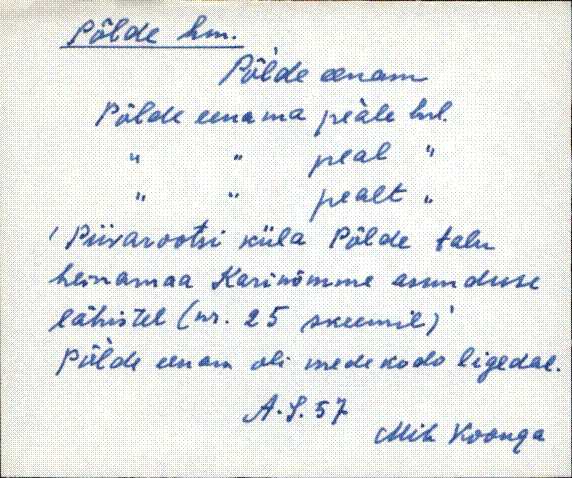 Põlde hm.
Põ`lde eenam
Põlde eenama peàle hul.
" " peal "
" " pealt "
' Piivarootsi küla Põlde talu
heinamaa Karinõmme asunduse
lähistel (nr. 25 skeemil)'
Põ`lde eenam oli mede kodo ligedal.
A.S. 57
Mih Koonga